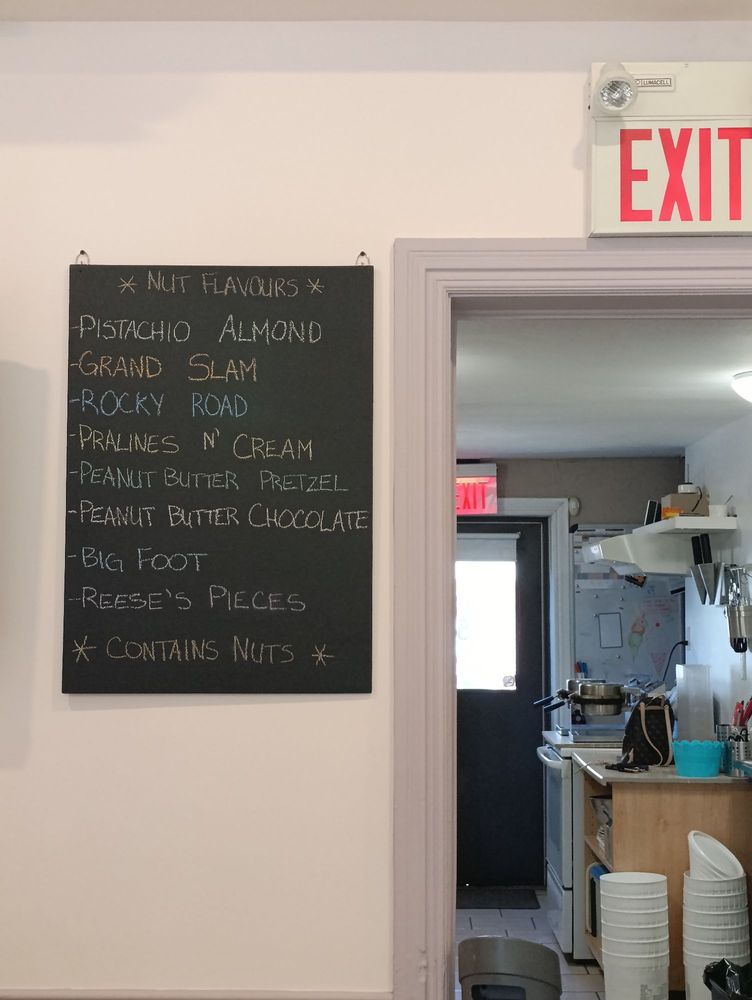 LUMACELL
EXIT
* NUT FLAVOURS *
-PISTACHIO ALMOND
-GRAND SLAM
-ROCKY ROAD
-PRALINES N' CREAM
-PEANUT BUTTER PRETZEL
-PEANUT BUTTER CHOCOLATE
-BIG FOOT
-REESE'S PIECES
* CONTAINS NUTS *
EXIT